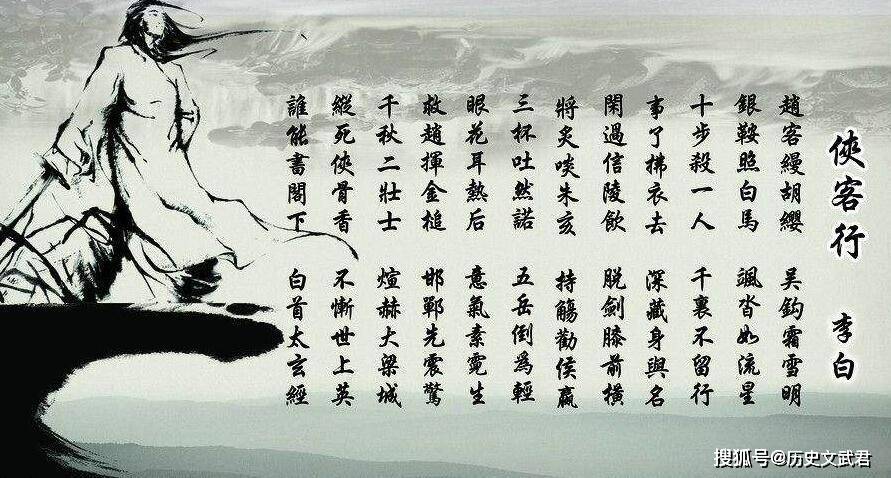 俠客行 李白
趙客縵胡纓 吴鈎霜雪明
銀鞍照白馬 颯沓如流星
十步殺一人 千裏不留行
事了拂衣去 深藏身與名
閑過信陵飲 脱劍膝前橫
將炙啖朱亥 持觴勸侯嬴
三杯吐然諾 五岳倒爲輕
眼花耳熱后 意氣素霓生
救趙揮金槌 邯鄲先震驚
千秋二壯士 煊赫大梁城
縱死俠骨香 不慚世上英
誰能書閣下 白首太玄經
搜狐号@历史文武君